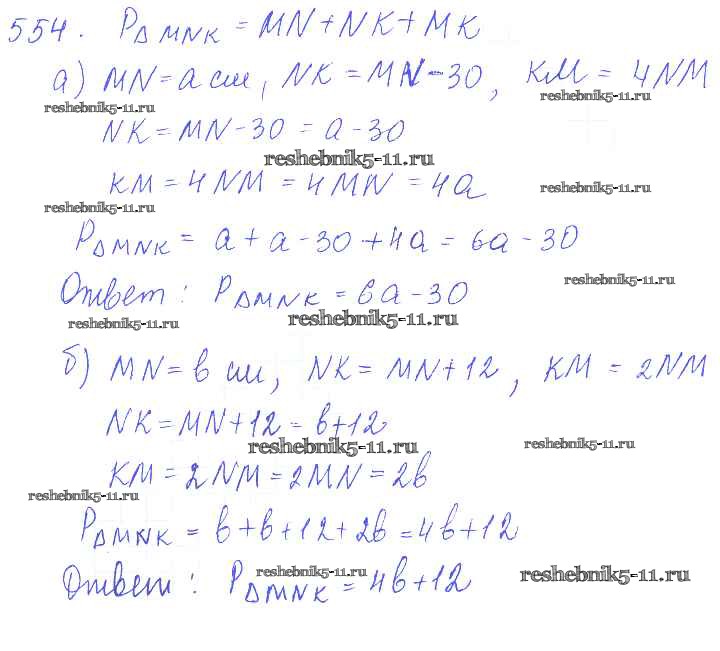 554. P△MNK = MN + NK + MK
а) MN = a см, NK = MN - 30, KM = 4NM
reshebnik5-11.ru reshebnik5-11.ru
NK = MN - 30 = a - 30
reshebnik5-11.ru
KM = 4NM = 4MN = 4a reshebnik5-11.ru
reshebnik5-11.ru
P△MNK = a + a - 30 + 4a = 6a - 30
reshebnik5-11.ru
Ответ: P△MNK = 6a - 30
reshebnik5-11.ru reshebnik5-11.ru
б) MN = b см, NK = MN + 12, KM = 2NM
NK = MN + 12 = b + 12
reshebnik5-11.ru reshebnik5-11.ru
KM = 2NM = 2MN = 2b
reshebnik5-11.ru
P△MNK = b + b + 12 + 2b = 4b + 12
reshebnik5-11.ru reshebnik5-11.ru
Ответ: P△MNK = 4b + 12